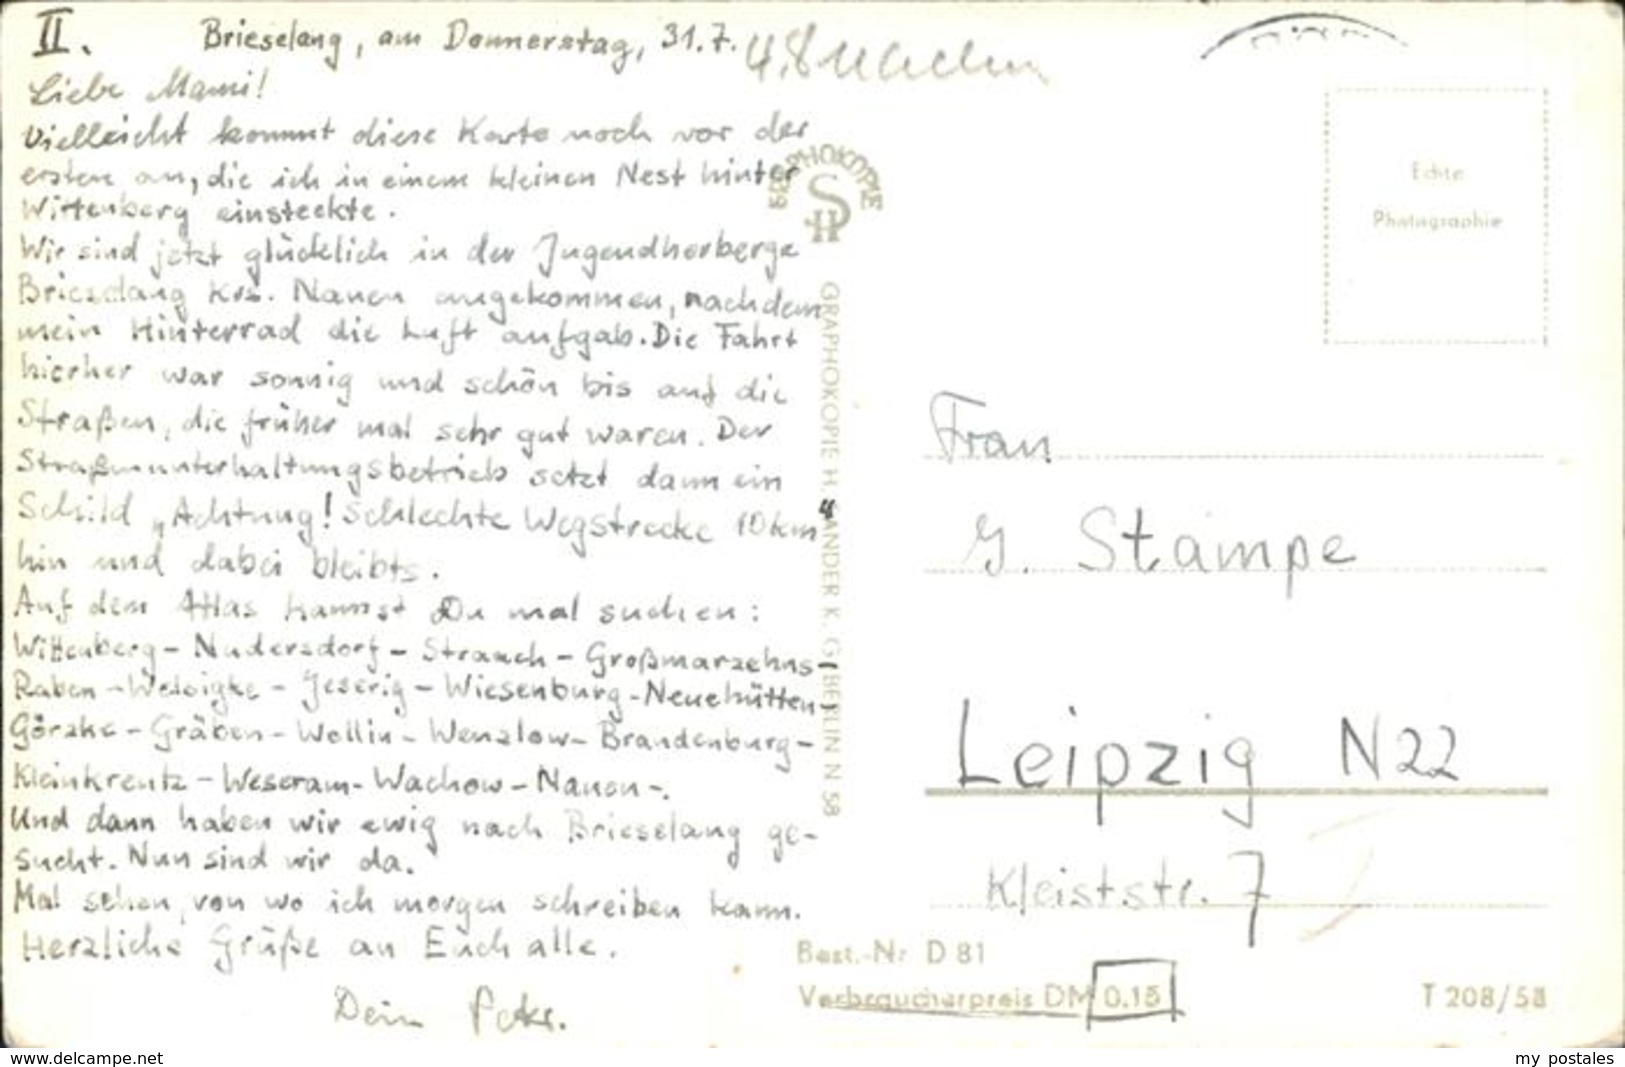 II. Brieselang, am Donnerstag, 31.7.
Liebe Mami!
Vielleicht kommt diese Karte noch vor der
ersten an, die ich in einem kleinen Nest hinter
Wittenberg einsteckte.
Wir sind jetzt glücklich in der Jugendherberge
Brieselang Krs. Nauen angekommen, nachdem
mein Hinterrad die Luft aufgab. Die Fahrt
hierher war sonnig und schön bis auf die
Straßen, die früher mal sehr gut waren. Der
Straßenunterhaltungsbetrieb setzt dann ein
Schild „Achtung! Schlechte Wegstrecke 10 km“
hin und dabei bleibts.
Auf dem Atlas kannst Du mal suchen:
Wittenberg - Nudersdorf - Straach - Großmarzehns -
Raben - Welsigke - Jeserig - Wiesenburg - Neuehütten -
Görzke - Gräben - Wollin - Wenzlow - Brandenburg -
Kleinkreutz - Weseram - Wachow - Nauen -.
Und dann haben wir ewig nach Brieselang ge-
sucht. Nun sind wir da.
Mal sehen, von wo ich morgen schreiben kann.
Herzliche Grüße an Euch alle.
Dein
GRAPHOKOPIE
SH
GRAPHOKOPIE H. SANDER K. G. BERLIN N 58
Echte
Photographie
Frau
G. Stampe
Leipzig N22
Kleiststr. 7
Best.-Nr D 81
Verbraucherpreis DM 0.15
T 208/58
www.delcampe.net
my postales